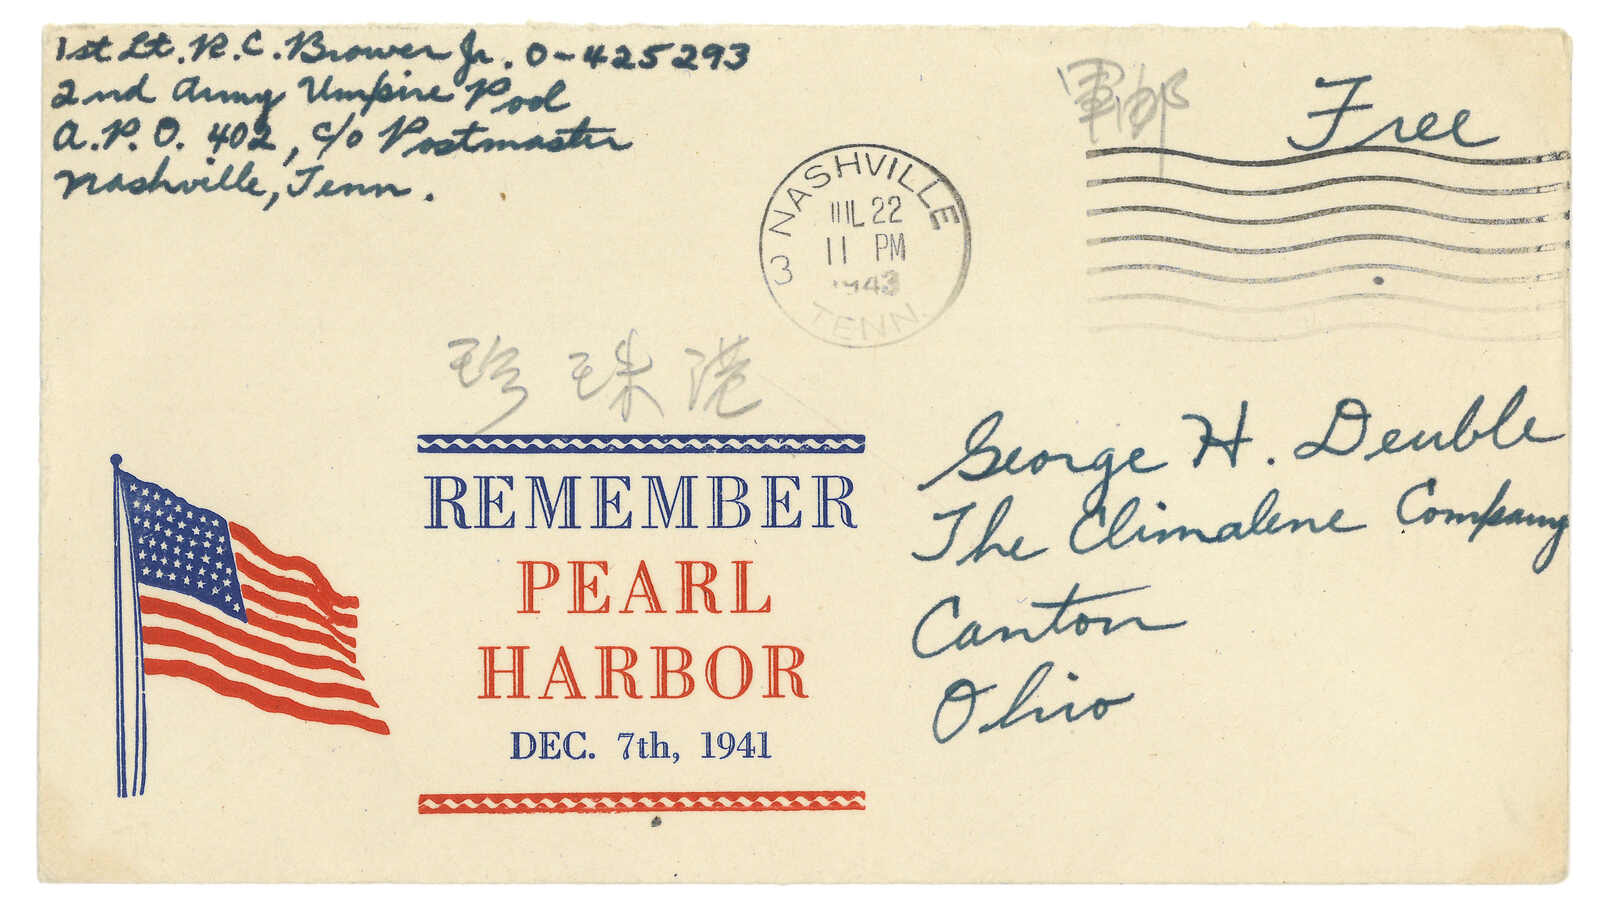 1st Lt. R. C. Brower Jr. O-425293
2nd Army Umpire Pool
A.P.O. 402, c/o Postmaster
Nashville, Tenn.
軍郵
Free
3 NASHVILLE TENN.
JUL 22
11 PM
1943
珍珠港
REMEMBER
PEARL
HARBOR
DEC. 7th, 1941
George H. Deuble
The Climalene Company
Canton
Ohio